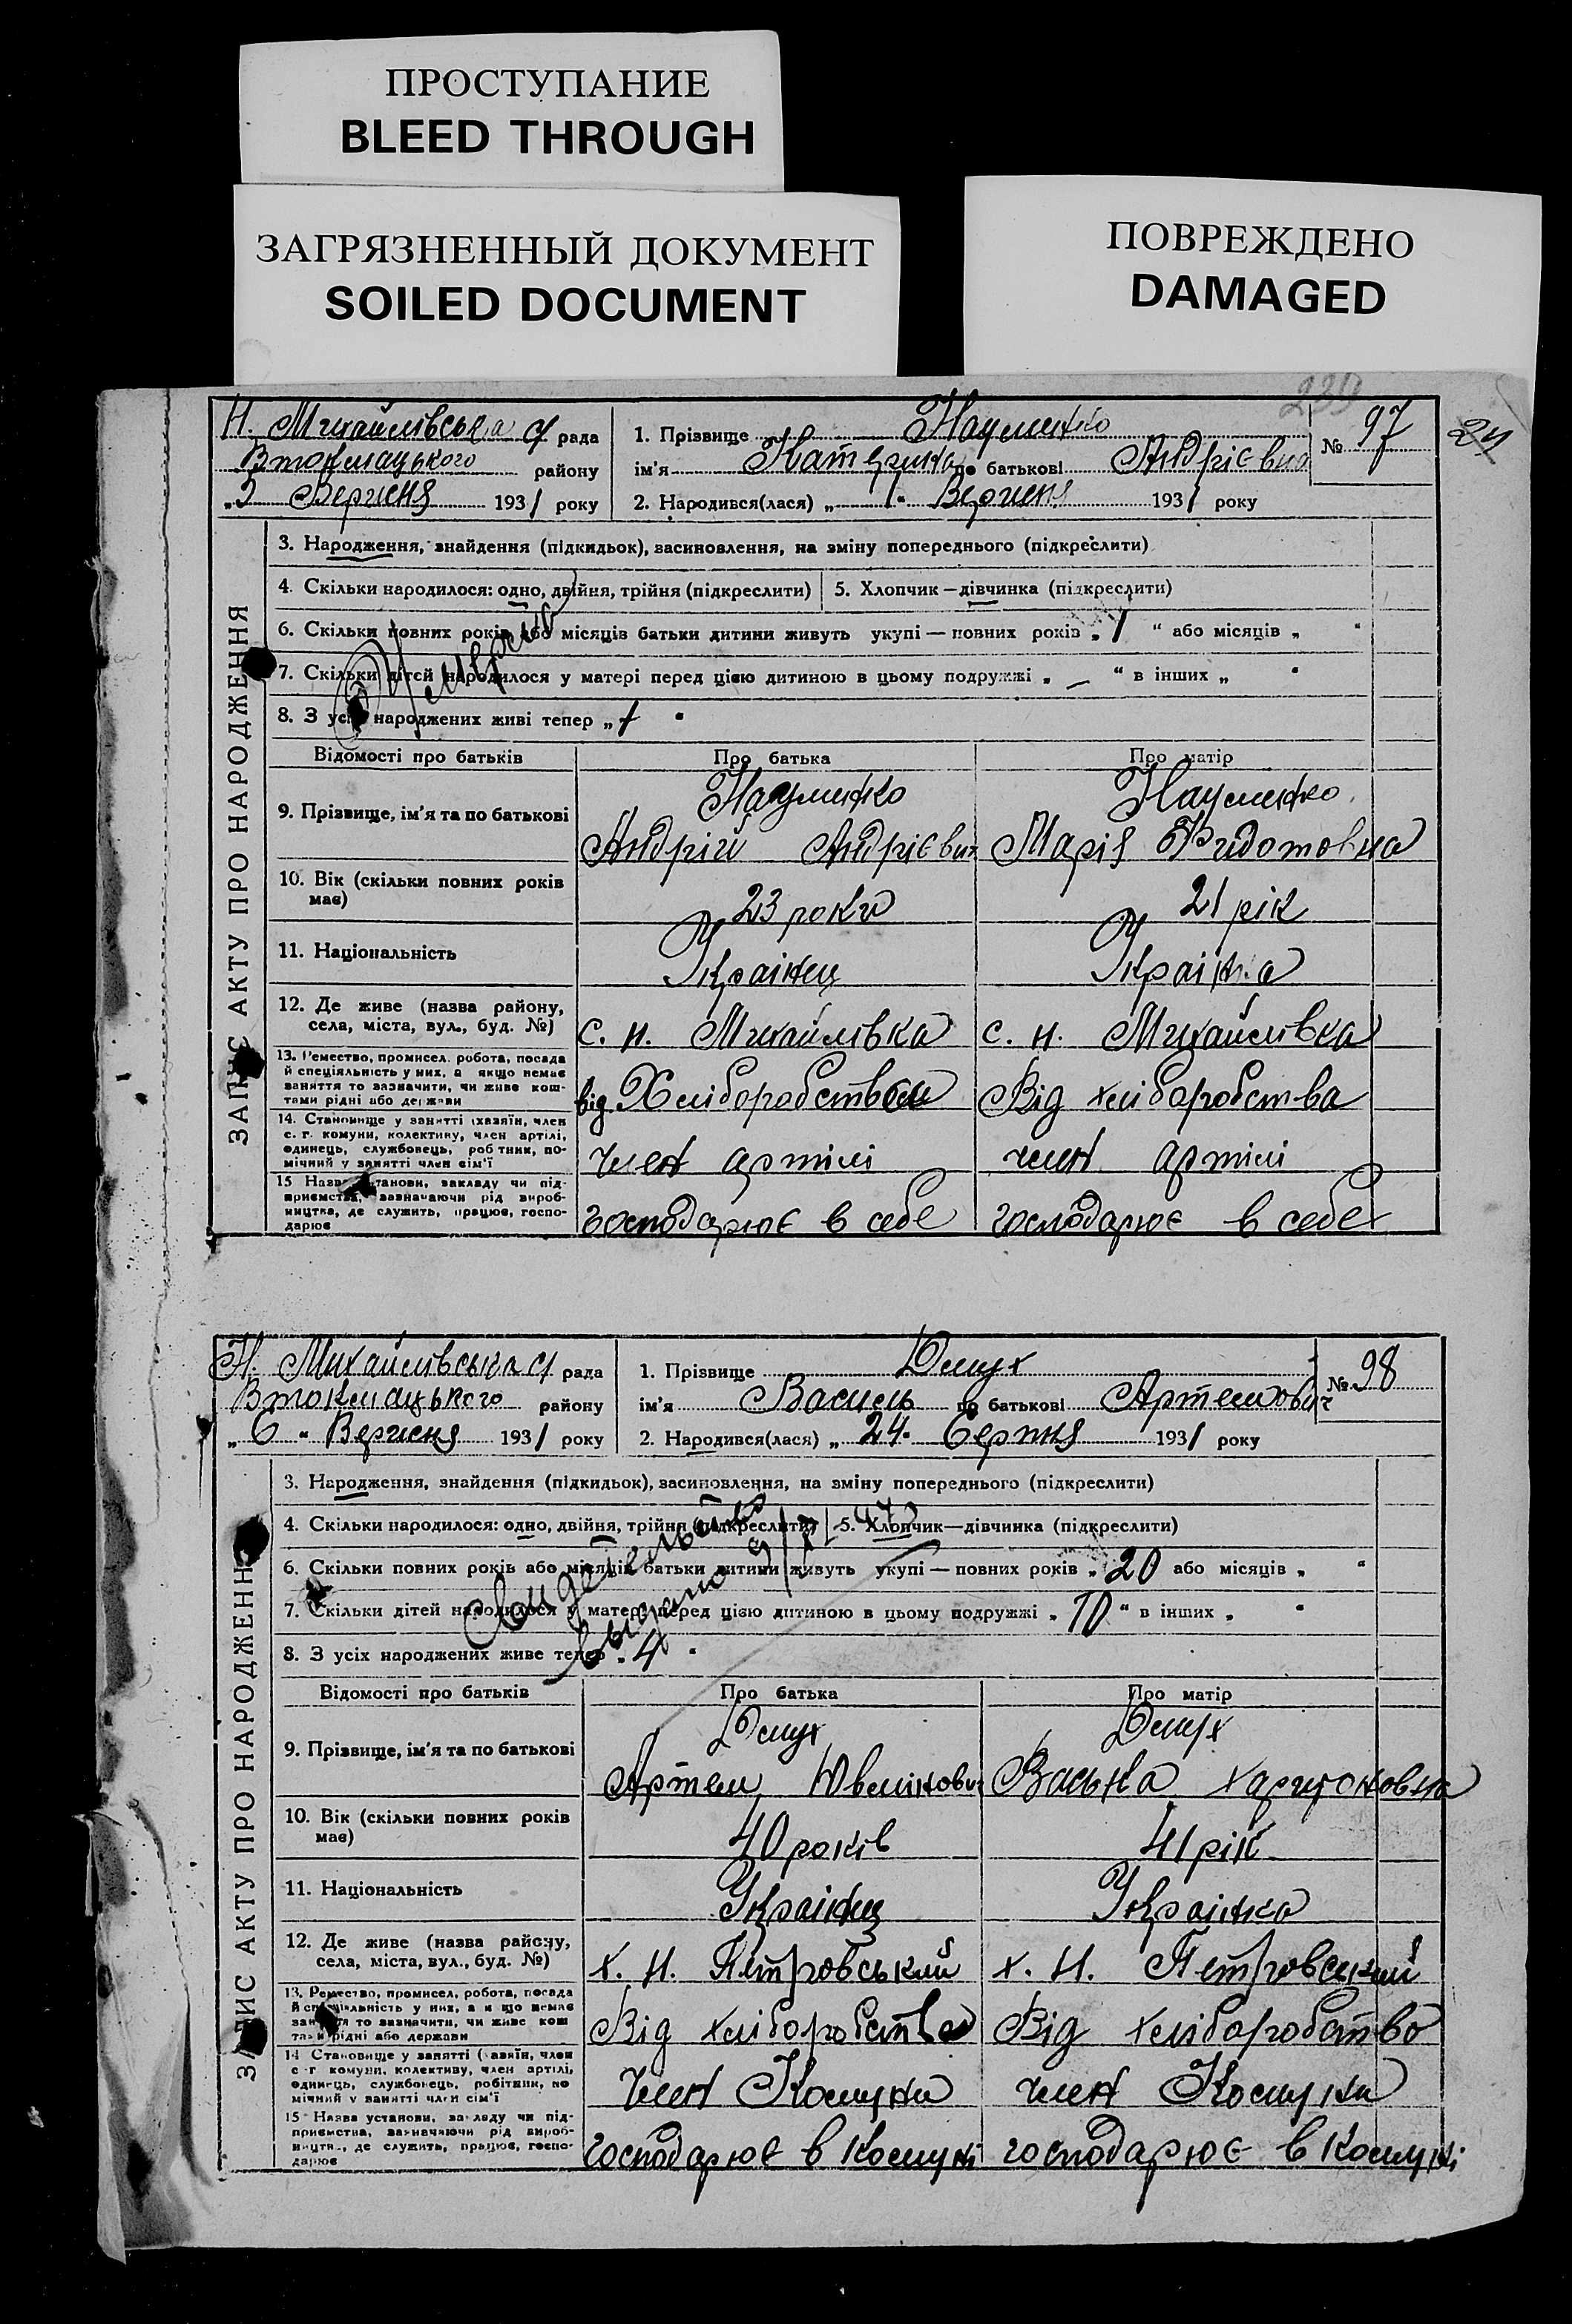 ПРОСТУПАНИЕ
BLEED THROUGH
ЗАГРЯЗНЕННЫЙ ДОКУМЕНТ
SOILED DOCUMENT
ПОВРЕЖДЕНО
DAMAGED
239
24
Н. Михайлівська с/ рада
Втокмацького району
„2 Вересня 1931 року
1. Прізвище Науменко
ім'я Катерина по батькові Андрієвна
№ 97
2. Народився(лася) „ 1 “ Вересня 1931 року
ЗАПИС АКТУ ПРО НАРОДЖЕННЯ
3. Народження, знайдення (підкидьок), васиновлення, на зміну попереднього (підкреслити)
4. Скільки народилося: одно, двійня, трійня (підкреслити) 5. Хлопчик — дівчинка (підкреслити)
6. Скільки повних років або місяців батьки дитини живуть укупі — повних років „ 1 “ або місяців „ “
7. Скільки дітей народилося у матері перед цією дитиною в цьому подружжі „ — “ в інших „ “
8. З усіх народжених живі тепер „ 1 “
Відомості про батьків Про батька Про матір
9. Прізвище, ім'я та по батькові
Науменко Науменко
Андрій Андрієвич Марія Федотовна
10. Вік (скільки повних років має)
23 роки 21 рік
11. Національність
Українец Українка
12. Де живе (назва району, села, міста, вул., буд. №)
с. Н. Михайлівка с. Н. Михайлівка
13. Ремество, промисел, робота, посада
й спеціяльність у них, а якщо немає
заняття то зазначити, чи живе кош-
тами рідні або держави
від Хліборобством Від хліборобства
14. Становище у занятті (хазяїн, член
с. г. комуни, колективу, член артілі,
одинець, службовець, робітник, по-
мічний у занятті член сім'ї
член артілі член артілі
15 Назва установи, закладу чи під-
приємства, зазначаючи рід вироб-
ництва, де служить, працює, госпо-
дарює
господарює в себе господарює в себе
Н. Михайлівська с/ рада
Втокмацького району
„ 6 “ Вересня 1931 року
1. Прізвище Демух
ім'я Василь по батькові Артемович
№ 98
2. Народився(лася) „ 24 “ Серпня 1931 року
ЗАПИС АКТУ ПРО НАРОДЖЕННЯ
3. Народження, знайдення (підкидьок), васиновлення, на зміну попереднього (підкреслити)
4. Скільки народилося: одно, двійня, трійня (підкреслити) 5. Хлопчик—дівчинка (підкреслити)
6. Скільки повних років або місяців батьки дитини живуть укупі — повних років „ 20 або місяців „ “
7. Скільки дітей народилося у матері перед цією дитиною в цьому подружжі „ 10 “ в інших „ “
8. З усіх народжених живе тепер „ 4 “
Відомості про батьків Про батька Про матір
9. Прізвище, ім'я та по батькові
Демух Демух
Артем Васька Харитоновна
10. Вік (скільки повних років має)
40 років 41 рік
11. Національність
Українец Українка
12. Де живе (назва району, села, міста, вул., буд. №)
х. Н. Петровський х. Н. Петровський
13. Ремество, промисел, робота, посада
й спеціяльність у них, а якщо немає
заняття то зазначити, чи живе кош
тами рідні або держави
Від хліборобства Від хліборобство
14 Становище у занятті (хазяїн, член
с г комуни, колективу, член артілі,
одинець, службовець, робітник, по
мічний у занятті член сім'ї
член Комуни член Комуни
15 Назва установи, закладу чи під-
приємства, зазначаючи рід вироб-
ництва, де служить, працює, госпо-
дарює
господарює в комуні господарює в комуні